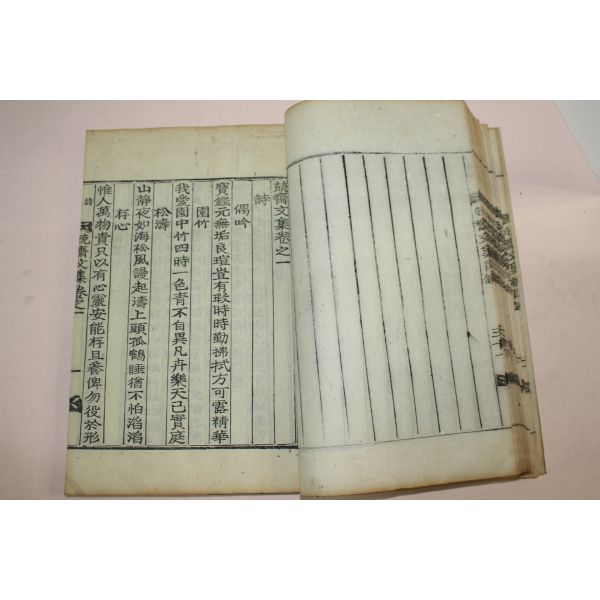 兢齋文集卷之一
詩
偶吟
寶鑑元無垢良瑄豈有瑕時時勤拂拭方可露精華
園竹
我愛園中竹四時一色靑不自異凡卉樂天已實庭
松濤
山靜夜如海松風謾起濤上頭孤鶴睡猶不怕滔滔
存心
惟人萬物貴只以有心靈安能存且養俾勿役於形
詩
齋文集卷之一
一